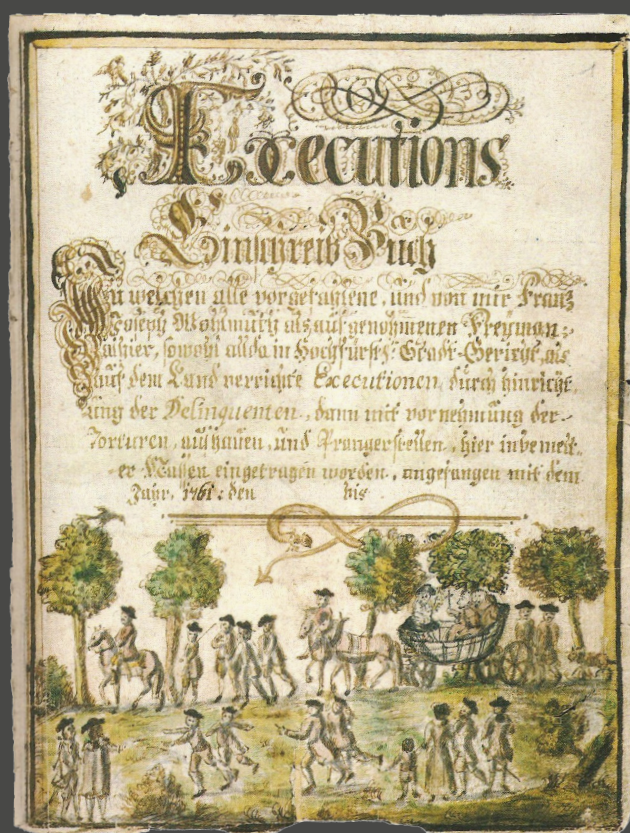 Executions
Einschreib Buch
In welchen alle vorgefahlene, und von mir Franz
Joseph Wohlmuth als aufgenohmenen Freyman:
alhier, sowohl allda in Hochfürstl: Stadt-Gericht, als
auf dem Land verrichte Executionen, durch hinricht
ung der Delinquenten, dann mit vornehmung der
Torturen, aushauen, und Prangerstellen, hier inbemelt
er Massen eingetragen worden, angefangen mit dem
Jahr, 1761: den bis